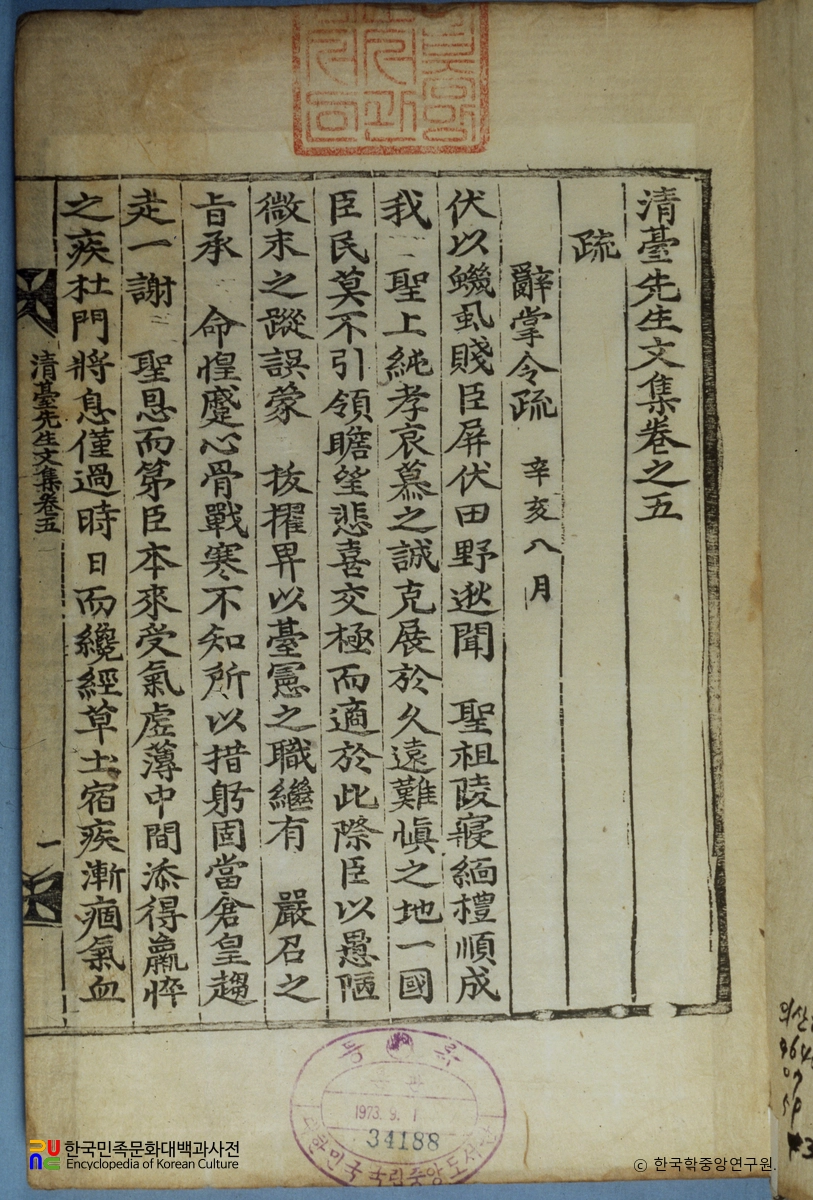 清臺先生文集卷之五
疏
辭掌令疏 辛亥八月
伏以蟣虱賤臣屛伏田野逖聞 聖祖陵寢緬禮順成
我 聖上純孝哀慕之誠克展於久遠難愼之地一國
臣民莫不引領瞻望悲喜交極而適於此際臣以愚陋
微末之蹤誤蒙 拔擢畀以臺憲之職繼有 嚴召之
旨承 命惶蹙心骨戰寒不知所以措躬固當倉皇趨
走一謝 聖恩而第臣本來受氣虛薄中間添得羸悴
之疾杜門將息僅過時日而纔經草土宿疾漸痼氣血
清臺先生文集卷五
一
1973. 9. 1
34188
한국민족문화대백과사전
Encyclopedia of Korean Culture
© 한국학중앙연구원.